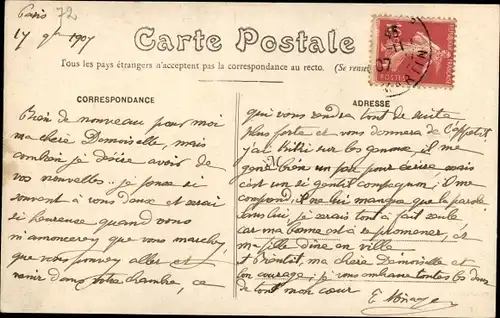 Paris 72
17 9bre 1907
Carte Postale
Tous les pays étrangers n'acceptent pas la correspondance au recto. (Se rense
CORRESPONDANCE
Rien de nouveau pour moi
ma chère Demoiselle, mais
combien je désire avoir de
vos nouvelles. je pense si
souvent à vous deux et serai
si heureuse quand vous
m'annoncerez que vous marchez,
que vous pouvez aller et
venir dans votre chambre, ce
ADRESSE
qui vous rendra tout de suite
plus forte et vous donnera de l'appétit
j'ai Kiki sur les genoux il me
gêne bien un peu pour écrire mais
c'est un si gentil compagnon, il me
comprend, il ne lui manque que la parole
sans lui, je serais tout à fait seule
car ma bonne est à se promener, et
ma fille dîne en ville
à bientôt, ma chère Demoiselle et
bon courage, je vous embrasse toutes les deux
de tout mon cœur
POSTES